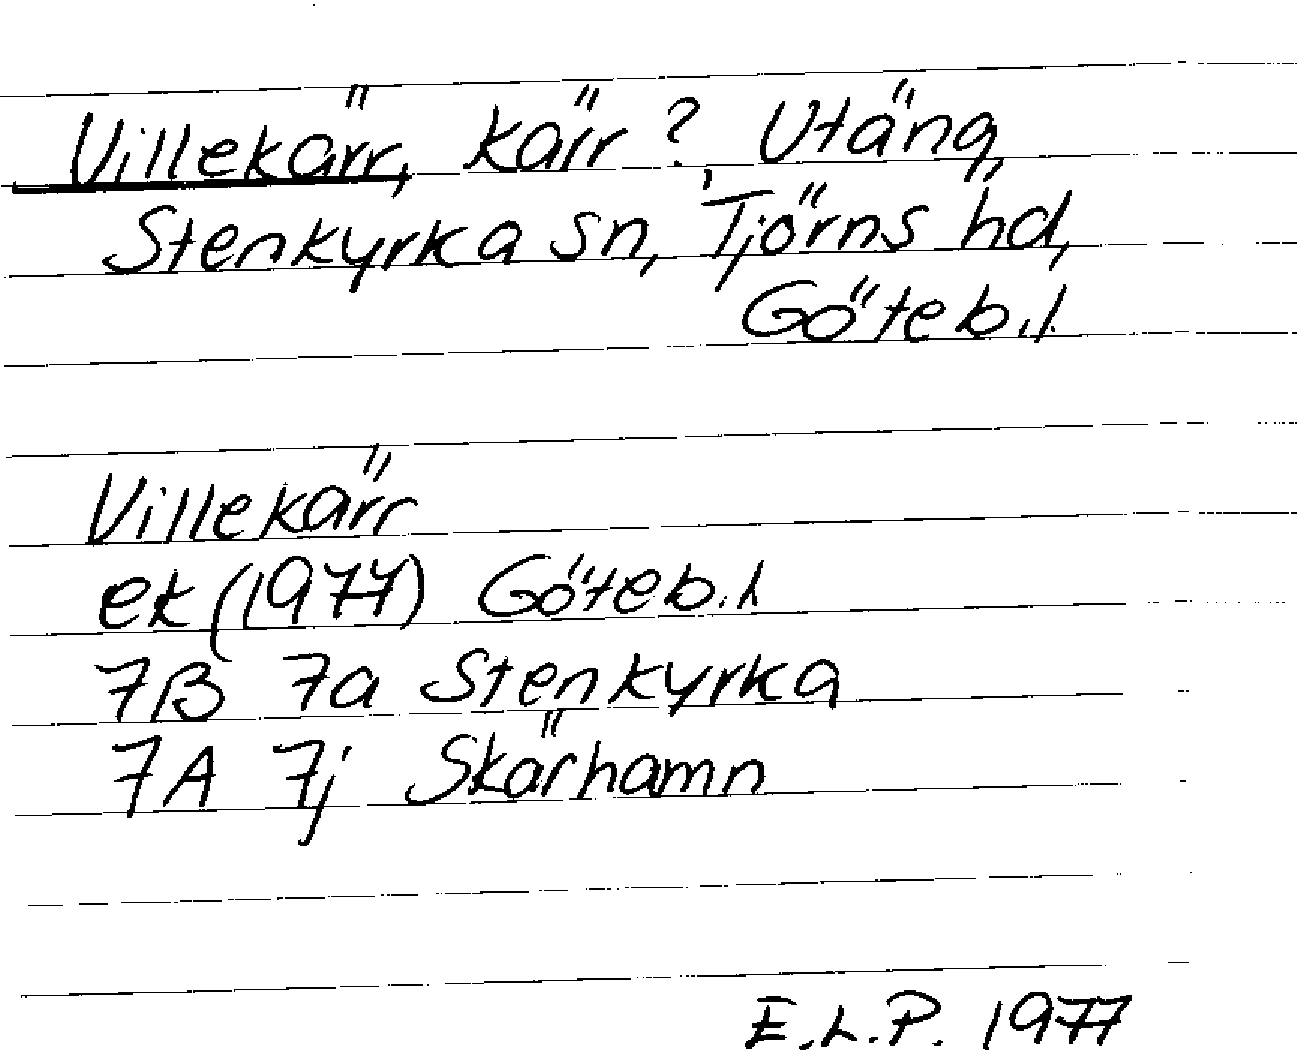 Villekärr, kärr? Utäng,
Stenkyrka sn, Tjörns hd,
Göteb.l.
Villekärr
ek (1977) Göteb.l
7B 7a Stenkyrka
7A 7j Skärhamn
E.L.P. 1977